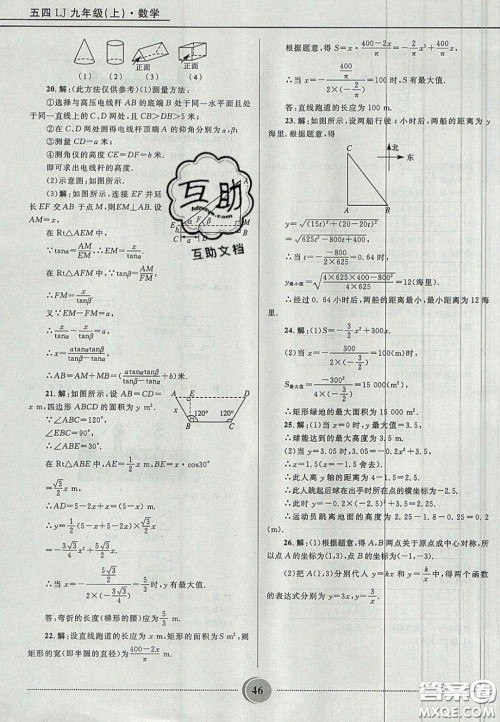 五四 LJ 九年级(上)·数学
正面 正面
(1) (2) (3) (4)
20. 解:(此方法仅供参考)(1)测量方法:
①选择与高压电线杆 AB 的底端 B 处于同一水
CB>CD);
②在 C、D 两处测得电线杆顶端 A 的仰角分别为 α,β;
③测量
④测角仪的高度 CE=DF=b 米.
即可求出电线杆的高度.
(2)示意图:如图.
(3)解:如图所示,连接 EF 并延
长 EF 交 AB 于点 M,则 EM⊥AB. 设
AM=x,
在 Rt△AEM 中,
∵tanα=AM/EM,
在 Rt△AFM 中,
∵tanβ=AM/FM,
∴FM=x/tanβ.
又∵EM−FM=a,
∴x/tanα−x/tanβ=a.
∴x=atanαtanβ/(tanβ−tanα).
∴AB=AM+MB=(atanαtanβ/(tanβ−tanα)+b)米.
21. 解:如图所示,设 AB=x
m,四边形 ABCD 的面积为 y m².
∵∠ABC=120°,
∴∠EBC=90°.
在 Rt△ABE 中,AE=BE=x·cos30°
=√3/2 x m.
∴AD=5−2x+x=(5−x)m.
∴y=1/2(5−2x+5−x)·√3/2 x
=−3√3/4 x²+5√3/2 x.
∴当 x=−(5√3/2)/(2×(−3√3/4))=5/3 时,y 有最大值.
答:弯折的长度(梯形的腰)应为 5/3 m.
22. 解:设直线跑道的长应为 x m,矩形的面积为 S m²,则
矩形的宽(即半圆的直径)为 (400−2x)/π m.
根据题意,得 S=x·(400−2x)/π=−2/π x²+400/π x.
∴当 x=−(400/π)/(2×(−2/π))=100 时,S 有最大值.
答:直线跑道的长应为 100 m.
23. 解:如图所示,设两船行驶 t 小时后,两船的距离为 y
海里.根据题意,得
北
东
y=√((15t)²+(20−20t)²)
=√(625t²−800t+400).
∴当 t=0.64 时,
y最小值=√((4×625×400−800²)/(4×625))=12(海里).
∴经过 0.64 小时后,两船的距离最小,最小距离为 12海里.
24. 解:(1)S=−3/2 x²+300x.
(2)当 x=−300/(2×(−3/2))=100(m)时,
S最大值=−300²/(4×(−3/2))=15 000(m²).
∴矩形绿地的最大面积为 15 000 m².
25. 解:(1)当 x=0 时,y=3.5.
∴球能达到的最大高度为 3.5 m.
(2)当 y=3.05 时,−0.2x²+3.5=3.05.
∴x=1.5(x=−1.5 舍去).
∴此人离 y 轴的距离为 4−1.5=2.5.
∴此人跳起后球在出手时所在的点的横坐标为−2.5.
∴当 x=−2.5 时,y=2.25.
∴运动员跳离地面的高度为
26. 解:(1)根据题意,得 A,B 两点关于原点成中心对称,所
以点 A 的坐标为(1,3),点 B 的坐标为(−1,−3).
(2)把 A 点坐标分别代入 y=kx 和 y=k/x 中,得两个函数
的表达式分别为 y=3x,y=3/x.
46
互助
互助文档
答案圈
MXQE.COM